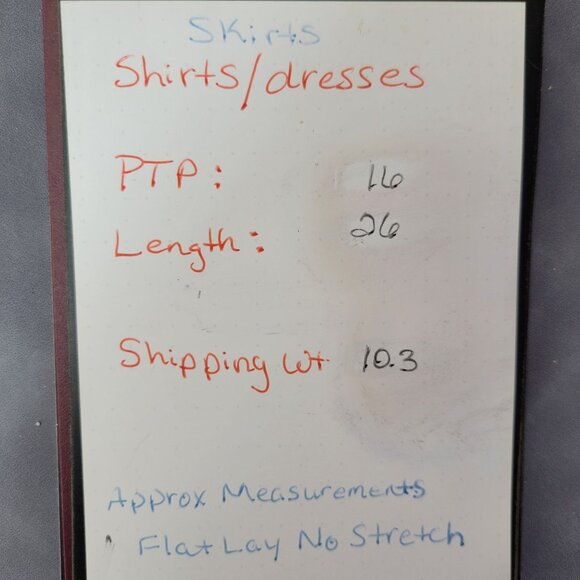 Skirts
Shirts/dresses
PTP: 16
Length: 26
Shipping Wt 10.3
Approx Measurements
Flat Lay No Stretch